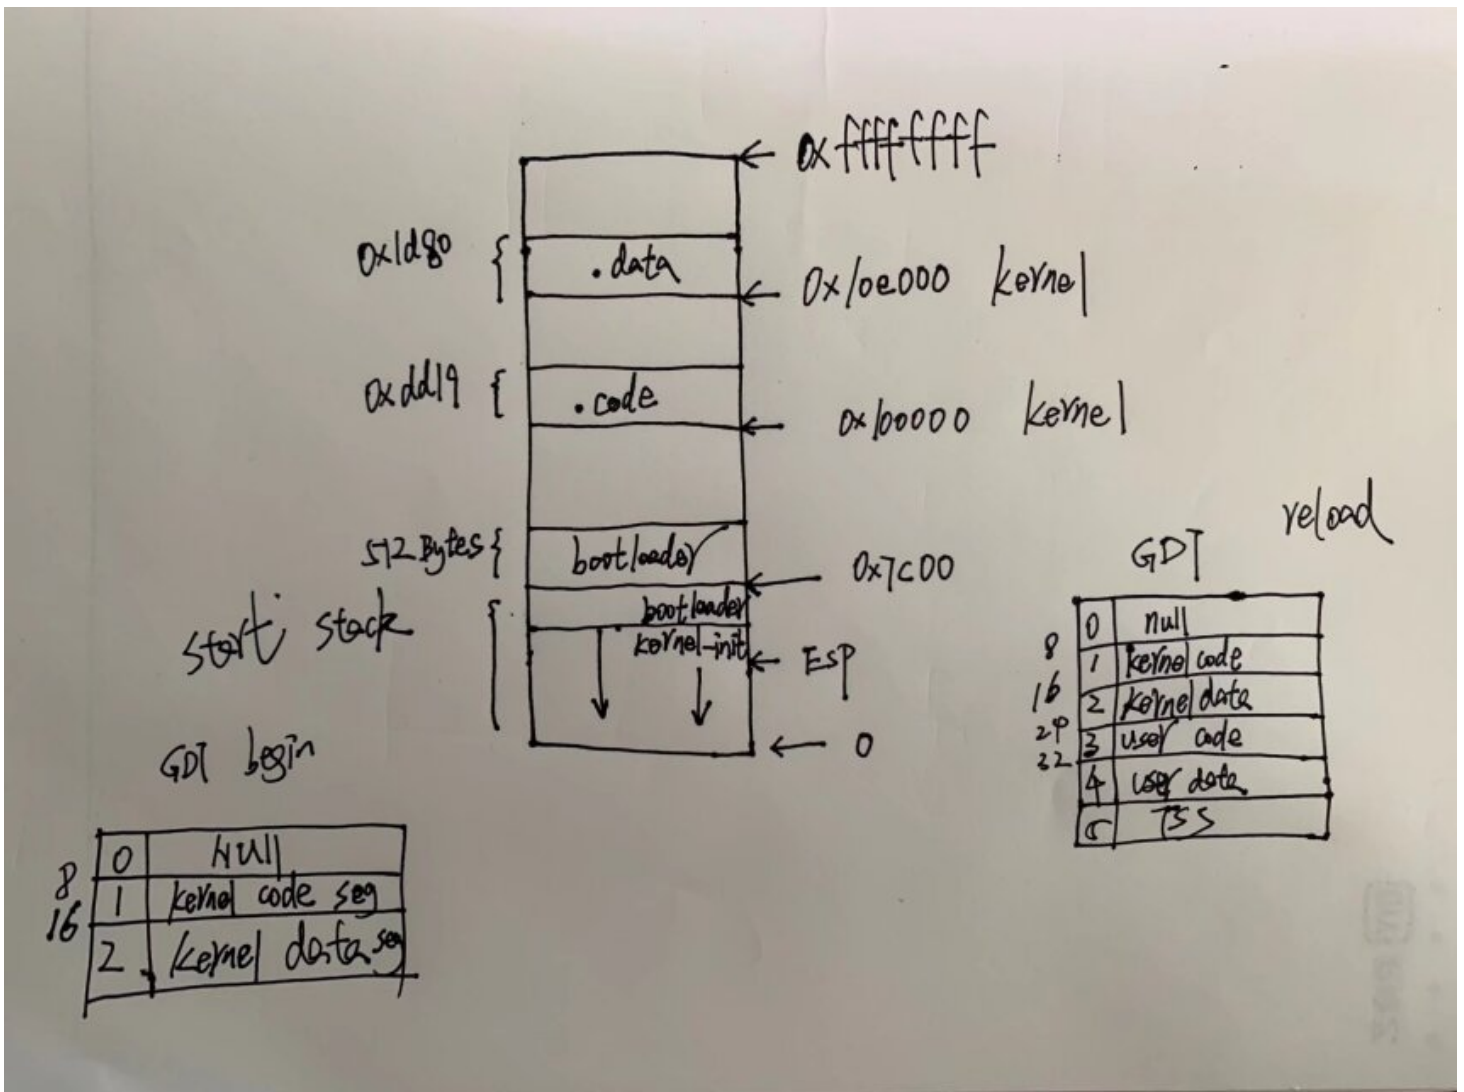 0xffffffff
0x1d80 { .data
0x10e000 kernel
0xdd19 { .code
0x100000 kernel
512 Bytes { bootloader
0x7c00
start stack
bootloader
kernel-init
ESP
0
GDT begin
0 NULL
8
1 kernel code seg
16
2 kernel data seg
reload
GDT
0 null
8
1 kernel code
16
2 kernel data
24
3 user code
32
4 user data
5 TSS